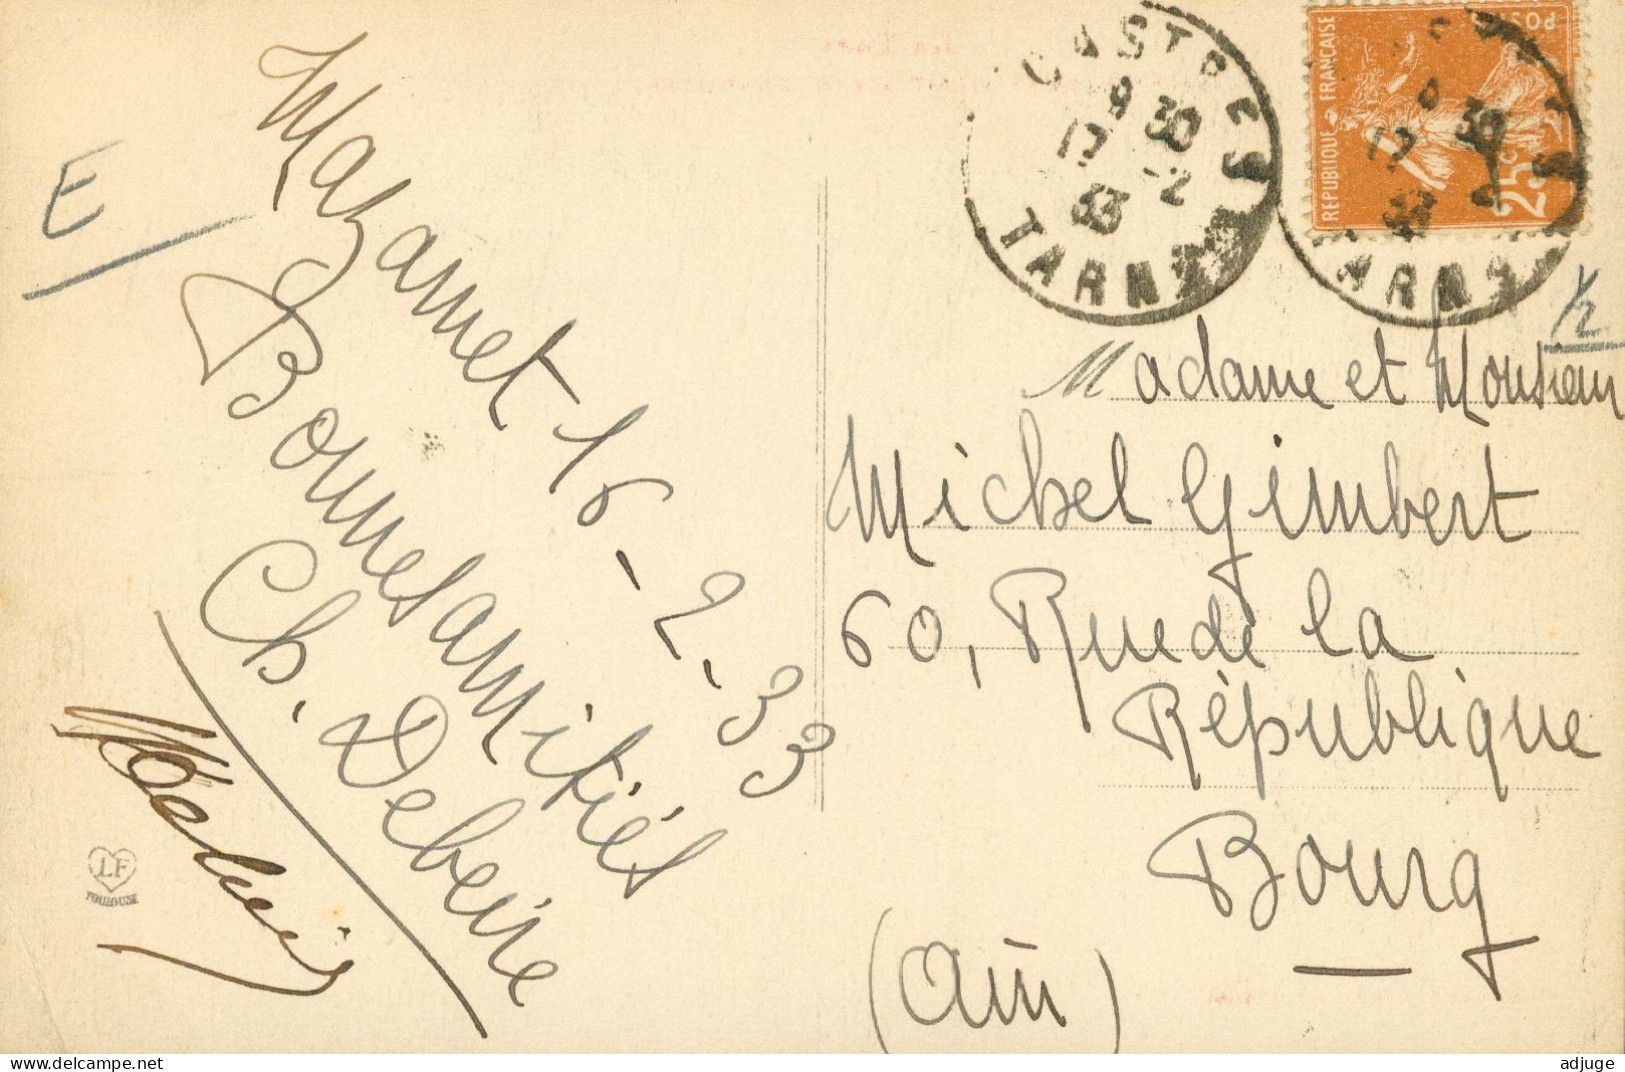 E
Mazamet 16-2-33
Bonnes amitiés
Ch. Debeire
LF
TOULOUSE
CASTRES
9 30
17 -2
33
TARN
REPUBLIQUE FRANÇAISE
25c
POS
1/2
Madame et Monsieur
Michel Gimbert
60, Rue de la
République
Bourg
(Ain)
adjuge